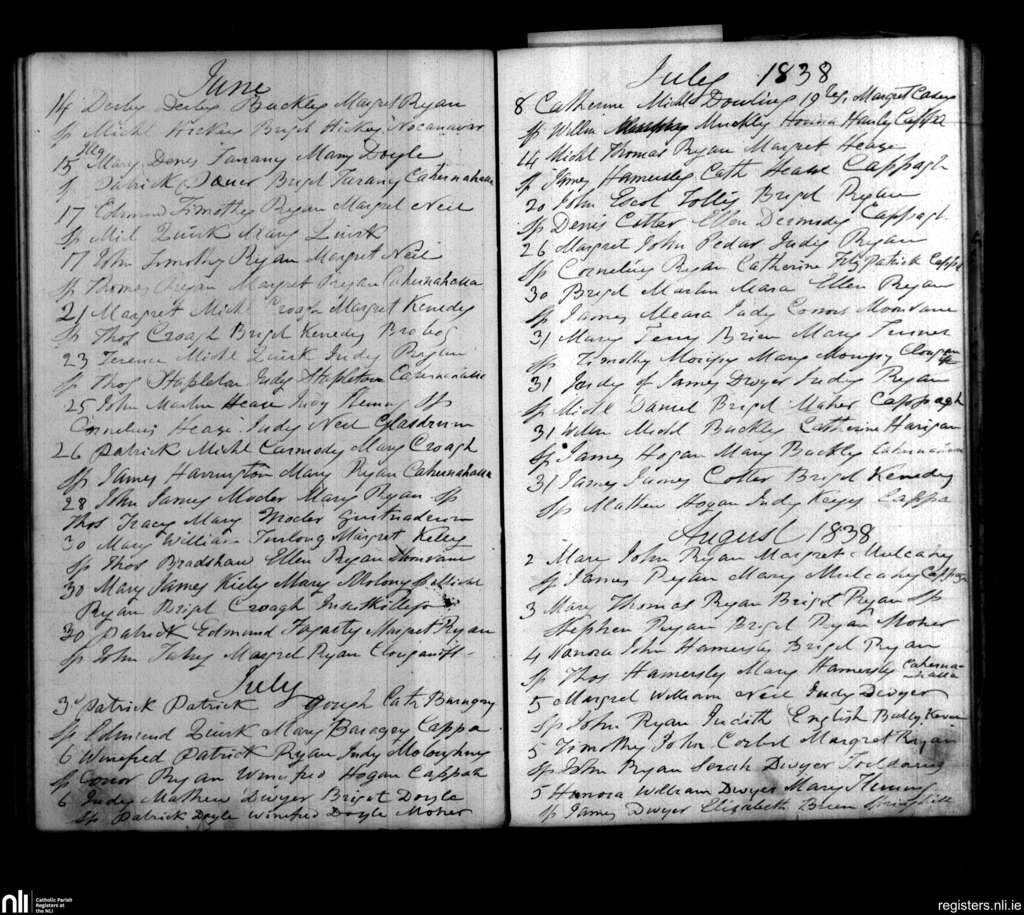 June
14 Derby Derby Buckley Margret Ryan
Sp Michl Hickey Brigd Hickey
15 Mary Denis Mary Doyle
Patrick Brigd Cahernahalla
17 Edmund Timothy Ryan Margret Neil
Sp Mil Quirk Mary Quirk
17 John Timothy Ryan Margret Neil
Sp Thomas Ryan Margret Ryan Cahernahalla
21 Margret Michl Croagh Margret Kenedy
Sp Thos Croagh Brigd Kenedy
23 Terence Michl Quirk Judy
Sp Thos Stapleton Judy Stapleton Cahernahalla
25 John Martin Hease Judy Sp
Cornelius Hease Judy Neil Glasdrum
26 Patrick Michl Carmody Mary Croagh
Sp James Harrington Mary Ryan Cahernahalla
28 John James Mocler Mary Ryan Sp
Thos Tracy Mary Mocler
30 Mary William Furlong Margret Kelly
Sp Thos Bradshaw Ellen Ryan
30 Mary James Kiely Mary Molony Sp Michl
Ryan Brigd Croagh
30 Patrick Edmund Fogarty Margret Ryan
Sp John Margret Ryan
July
3 Patrick Patrick Gough Cath
Sp Edmund Quirk Mary Cappa
6 Winefred Patrick Ryan Judy
Sp Conor Ryan Winefred Hogan Cappah
6 Judy Mathew Dwyer Briget Doyle
Sp Patrick Doyle Winefred Doyle Moher
July 1838
8 Catherine Michl Dowling Margret Casey
Sp Willm Muckley Honora Hanly Cappa
14 Michl Thomas Ryan Margret Hease
Sp James Hamersley Cath Hease Cappagh
20 John Brigd Ryan
Sp Denis Cotter Ellen Dermody Cappagh
26 Margret John Judy Ryan
Sp Cornelius Ryan Catherine Fitzpatrick
30 Brigd Martin Mara Ellen Ryan
Sp James Meara Judy Connors
31 Mary Terry Brien Mary Turner
Sp Timothy Mary
31 Judy of James Dwyer Judy Ryan
Sp Michl Daniel Brigd Maher Cappagh
31 Willm Michl Buckley Catherine Harigan
Sp James Hogan Mary Buckley
31 James James Cotter Brigd Kenedy
Sp Mathew Hogan Judy Keyes Cappa
August 1838
2 Mary John Ryan Margret Mulcahy
Sp James Ryan Mary Mulcahy
3 Mary Thomas Ryan Brigd Ryan Sp
Stephen Ryan Brigd Ryan Moher
4 Honora John Hamersly Brigd Ryan
Sp Thos Hamersly Mary Hamersly Caherna-
halla
5 Margret William Neil Judy Dwyer
Sp John Ryan Judith English
5 Timothy John Corbet Margret Ryan
Sp John Ryan Sarah Dwyer
5 Honora William Dwyer Mary Fleming
Sp James Dwyer Elizabeth Brien
nli
Catholic Parish
Registers at
the NLI
registers.nli.ie